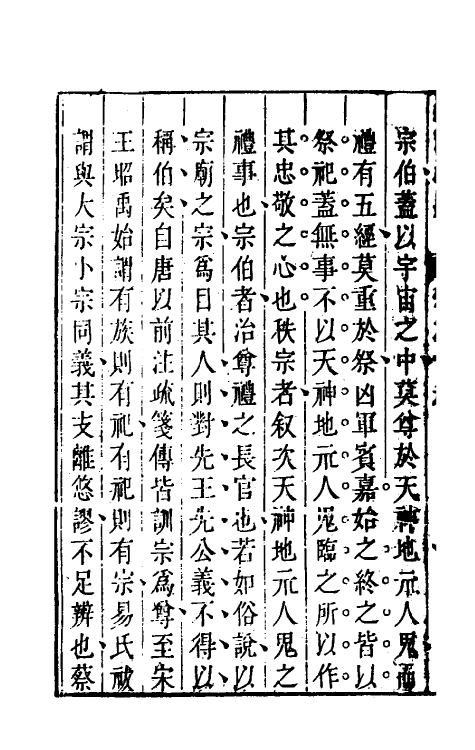 宗伯蓋以宇宙之中莫尊於天神地元人鬼而
禮有五經莫重於祭凶軍賓嘉始之終之皆以
祭祀蓋無事不以天神地元人鬼臨之所以作
其忠敬之心也秩宗者叙次天神地元人鬼之
禮事也宗伯者治尊禮之長官也若如俗說以
宗廟之宗爲目其人則對先王先公義不得以
稱伯矣自唐以前注疏箋傳皆訓宗爲尊至宋
王昭禹始謂有族則有祀有祀則有宗易氏祓
謂與大宗小宗同義其支離悠謬不足辨也蔡